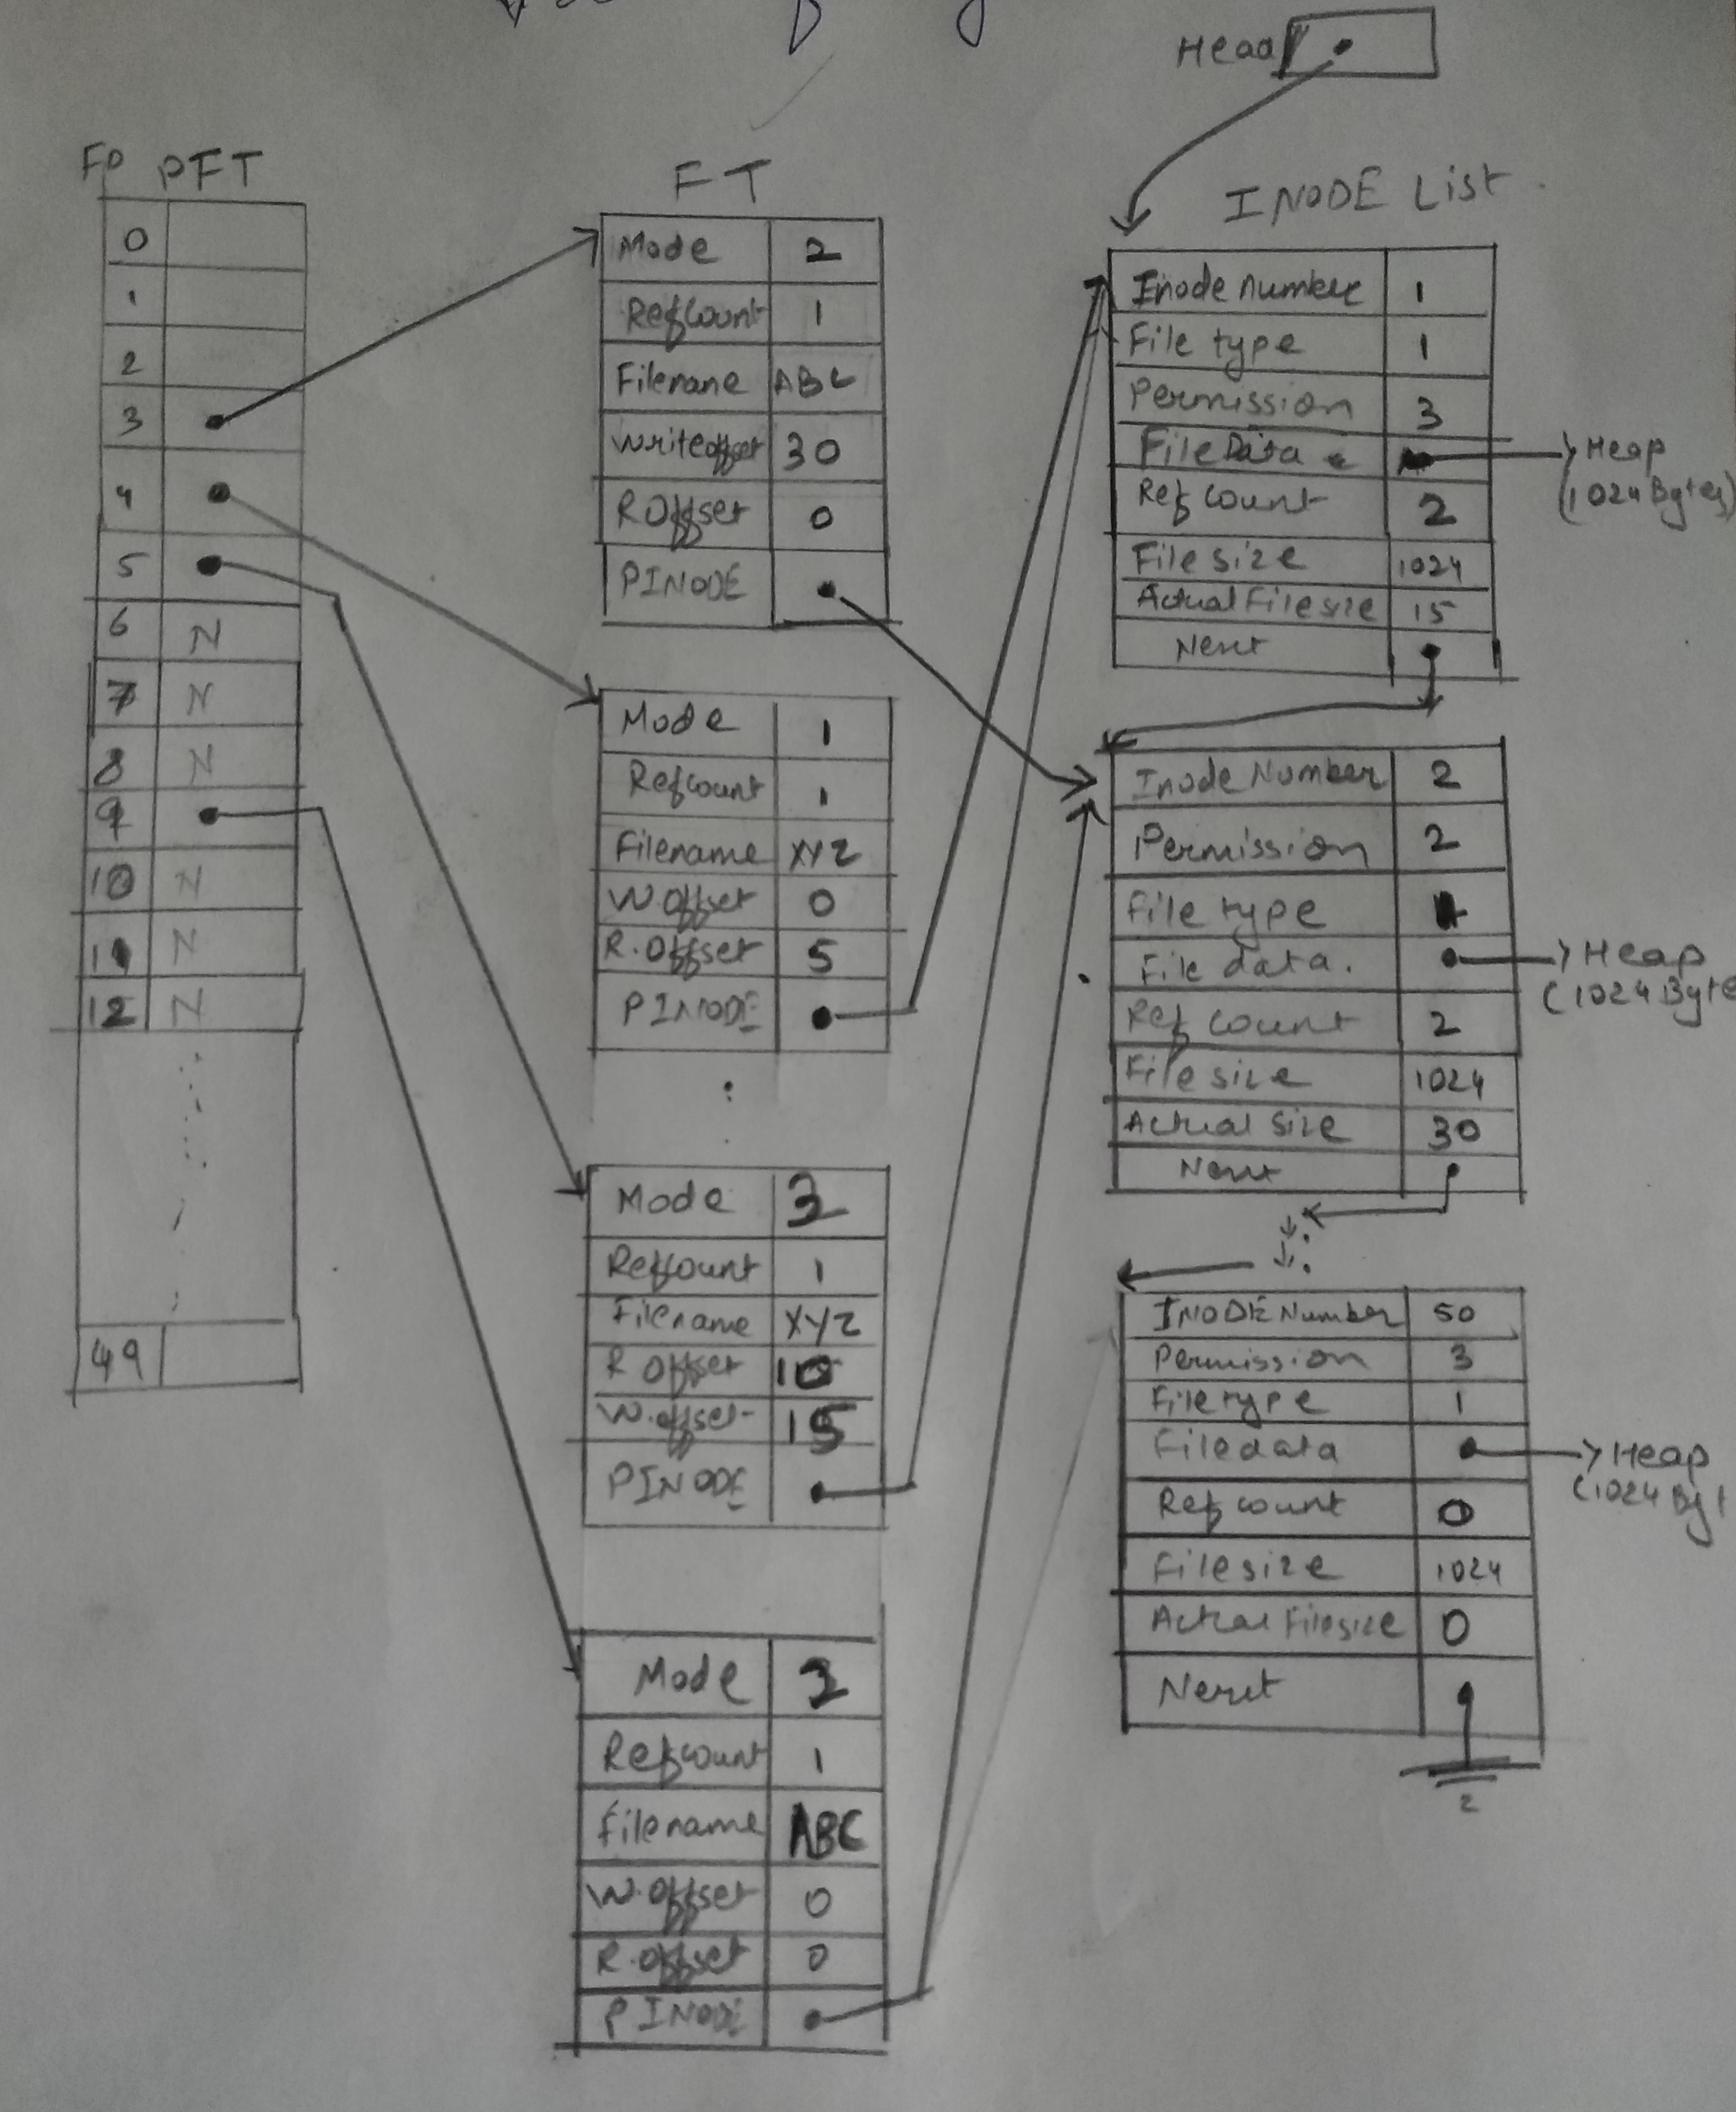 Head
FD PFT
0
1
2
3
4
5
6 N
7 N
8 N
9
10 N
11 N
12 N
49
FT
Mode 2
Refcount 1
Filename ABC
Writeoffset 30
R Offset 0
PINODE
Mode 1
Refcount 1
Filename XYZ
W.offset 0
R.offset 5
PINODE
Mode 3
Refcount 1
Filename XYZ
R offset 10
W.offset 15
PINODE
Mode
Refcount 1
Filename ABC
W.offset 0
R.offset 0
PINODE
INODE List
Inode number 1
File type 1
Permission 3
File Data
Heap
(1024 Bytes)
Ref count 2
File size 1024
Actual File size 15
Next
Inode Number 2
Permission 2
File type 1
File data.
Heap
(1024 Byte
Ref count 2
File size 1024
Actual Size 30
Next
INODE Number 50
Permission 3
File type 1
File data
Heap
(1024 Byt
Ref count 0
File size 1024
Actual Filesize 0
Next